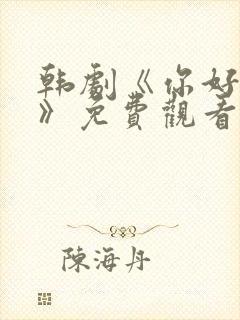 韩劇《你好
》免費觀看
陳海丹